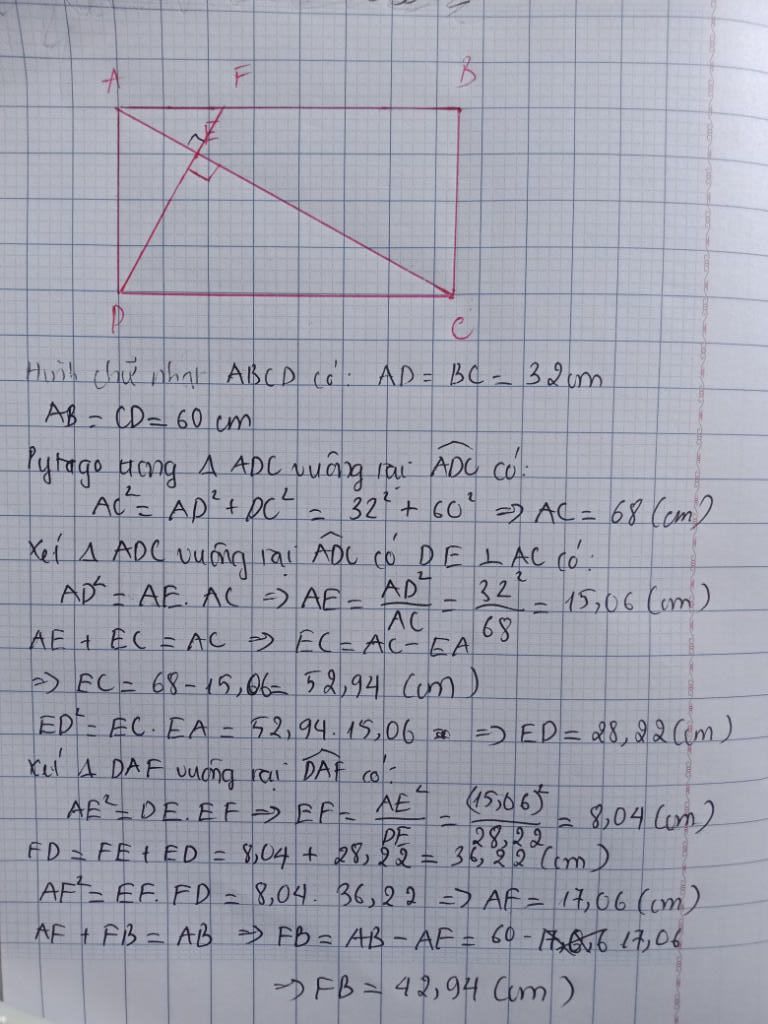 A F B
E
D C
Hình chữ nhật ABCD có: AD = BC = 32cm
AB = CD = 60 cm
Pytago trong Δ ADC vuông tại \widehat{ADC} có:
AC² = AD² + DC² = 32² + 60² => AC = 68 (cm)
Xét Δ ADC vuông tại \widehat{ADC} có DE ⊥ AC có:
AD² = AE. AC => AE = \frac{AD²}{AC} = \frac{32²}{68} = 15,06 (cm)
AE + EC = AC => EC = AC - EA
=> EC = 68 - 15,06 = 52,94 (cm)
ED² = EC. EA = 52,94. 15,06 => ED = 28,22 (cm)
Xét Δ DAF vuông tại \widehat{DAF} có:
AE² = DE. EF => EF = \frac{AE²}{DE} = \frac{(15,06)²}{28,22} = 8,04 (cm)
FD = FE + ED = 8,04 + 28,22 = 36,22 (cm)
AF² = EF. FD = 8,04. 36,22 => AF = 17,06 (cm)
AF + FB = AB => FB = AB - AF = 60 - 17,06
=> FB = 42,94 (cm)